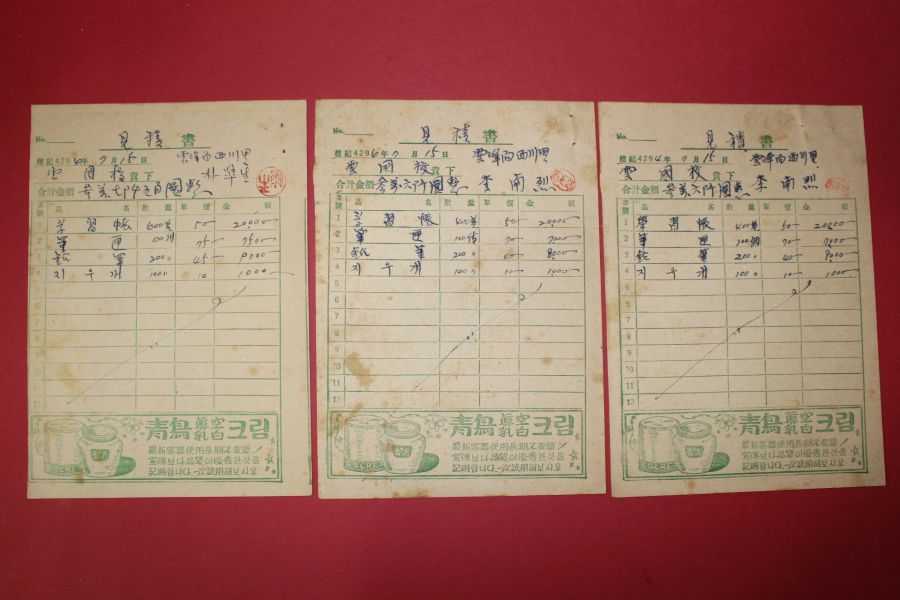 No.
見積書
檀記 4294年 7月 15日
雲峰面西川里
雲国校 貴下
合計金額
番號 品名 數量 單價 金額
1 学習帳 400 50 20000
2 筆匣 100 75 7500
3 鉛筆 200〃 45 9000
4 지우개 100〃 10 1000
5
6
7
8
9
10
11
12
青鳥 眞空乳白 크림
最新容器使用長期不変質
宣傳보다品質이優秀한것을
記明합니다.一次試用해보시요
No.
見積書
檀記 4294年 7月 15日
雲峰面西川里
雲國校 貴下
合計金額 參萬六仟圜整 李南烈
番號 品名 數量 單價 金額
1 學習帳 400 50 20000
2 筆匣 100 70 7000
3 鉛筆 200〃 40 8000
4 지우개 100〃 10 1000
5
6
7
8
9
10
11
12
青鳥 眞空乳白 크림
最新容器使用長期不変質
宣傳보다品質이優秀한것을
記明합니다.一次試用해보시요
No.
見積書
檀記 4294年 7月 15日
雲峰面西川里
雲國校 貴下
合計金額 參萬六仟圜整 李南烈
番號 品名 數量 單價 金額
1 學習帳 400 50 20000
2 筆匣 100個 70 7000
3 鉛筆 200〃 40 8000
4 지우개 100〃 10 1000
5
6
7
8
9
10
11
12
青鳥 眞空乳白 크림
最新容器使用長期不変質
宣傳보다品質이優秀한것을
記明합니다.一次試用해보시요